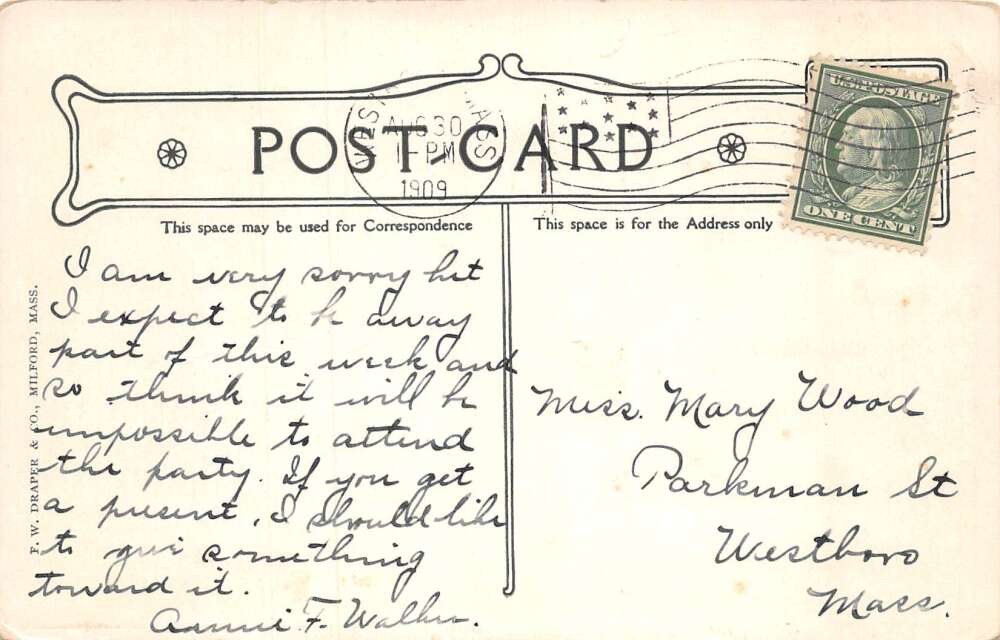 POST CARD
AUG 30
PM
1909
MASS
U.S. POSTAGE
ONE CENT
This space may be used for Correspondence
This space is for the Address only
F. W. DRAPER & CO., MILFORD, MASS.
I am very sorry but
I expect to be away
part of this week and
so think it will be
impossible to attend
the party. If you get
a present, I should like
to give something
toward it.
Annie F. Walker.
Miss. Mary Wood
Parkman St
Westboro
Mass.